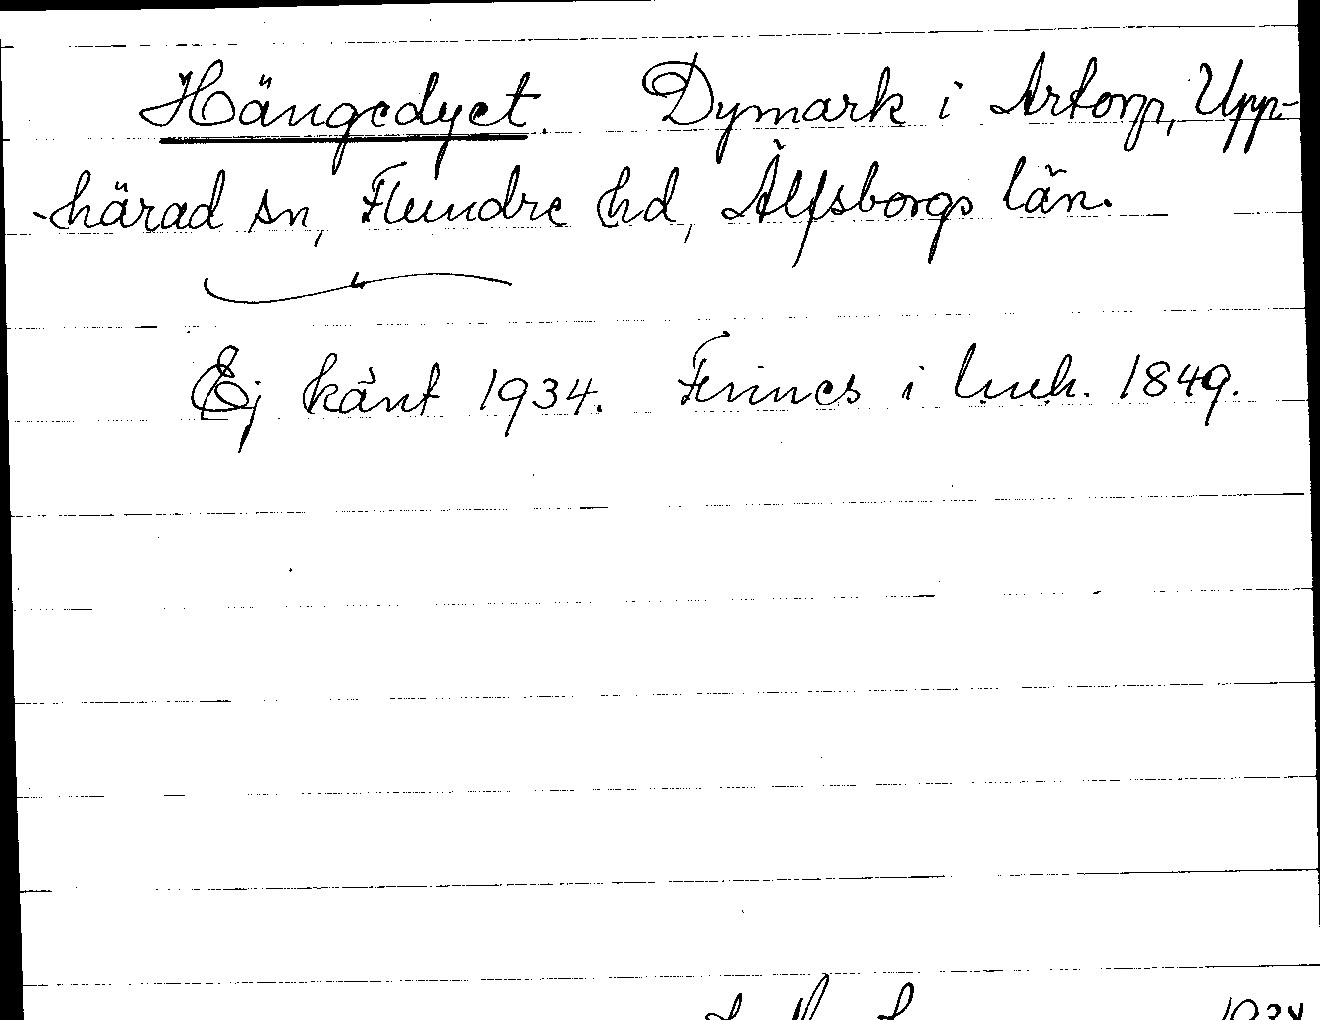 Hängedyet. Dymark i Artorp, Upp-
-härad sn, Flundre hd, Älfsborgs län.
Ej känt 1934. Finnes i 1849.